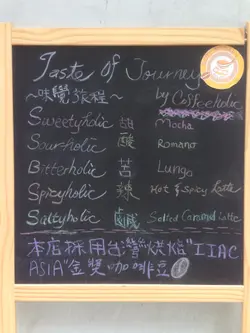 Taste Of Journey
~味覺旅程~
by Coffeeholic
Sweetyholic 甜 Mocha
Sourholic 酸 Romano
Bitterholic 苦 Lungo
Spicyholic 辣 Hot & Spicy Latte
Saltyholic 鹹 Salted Caramel Latte
本店採用台灣烘焙"IIAC
ASIA"金獎咖啡豆